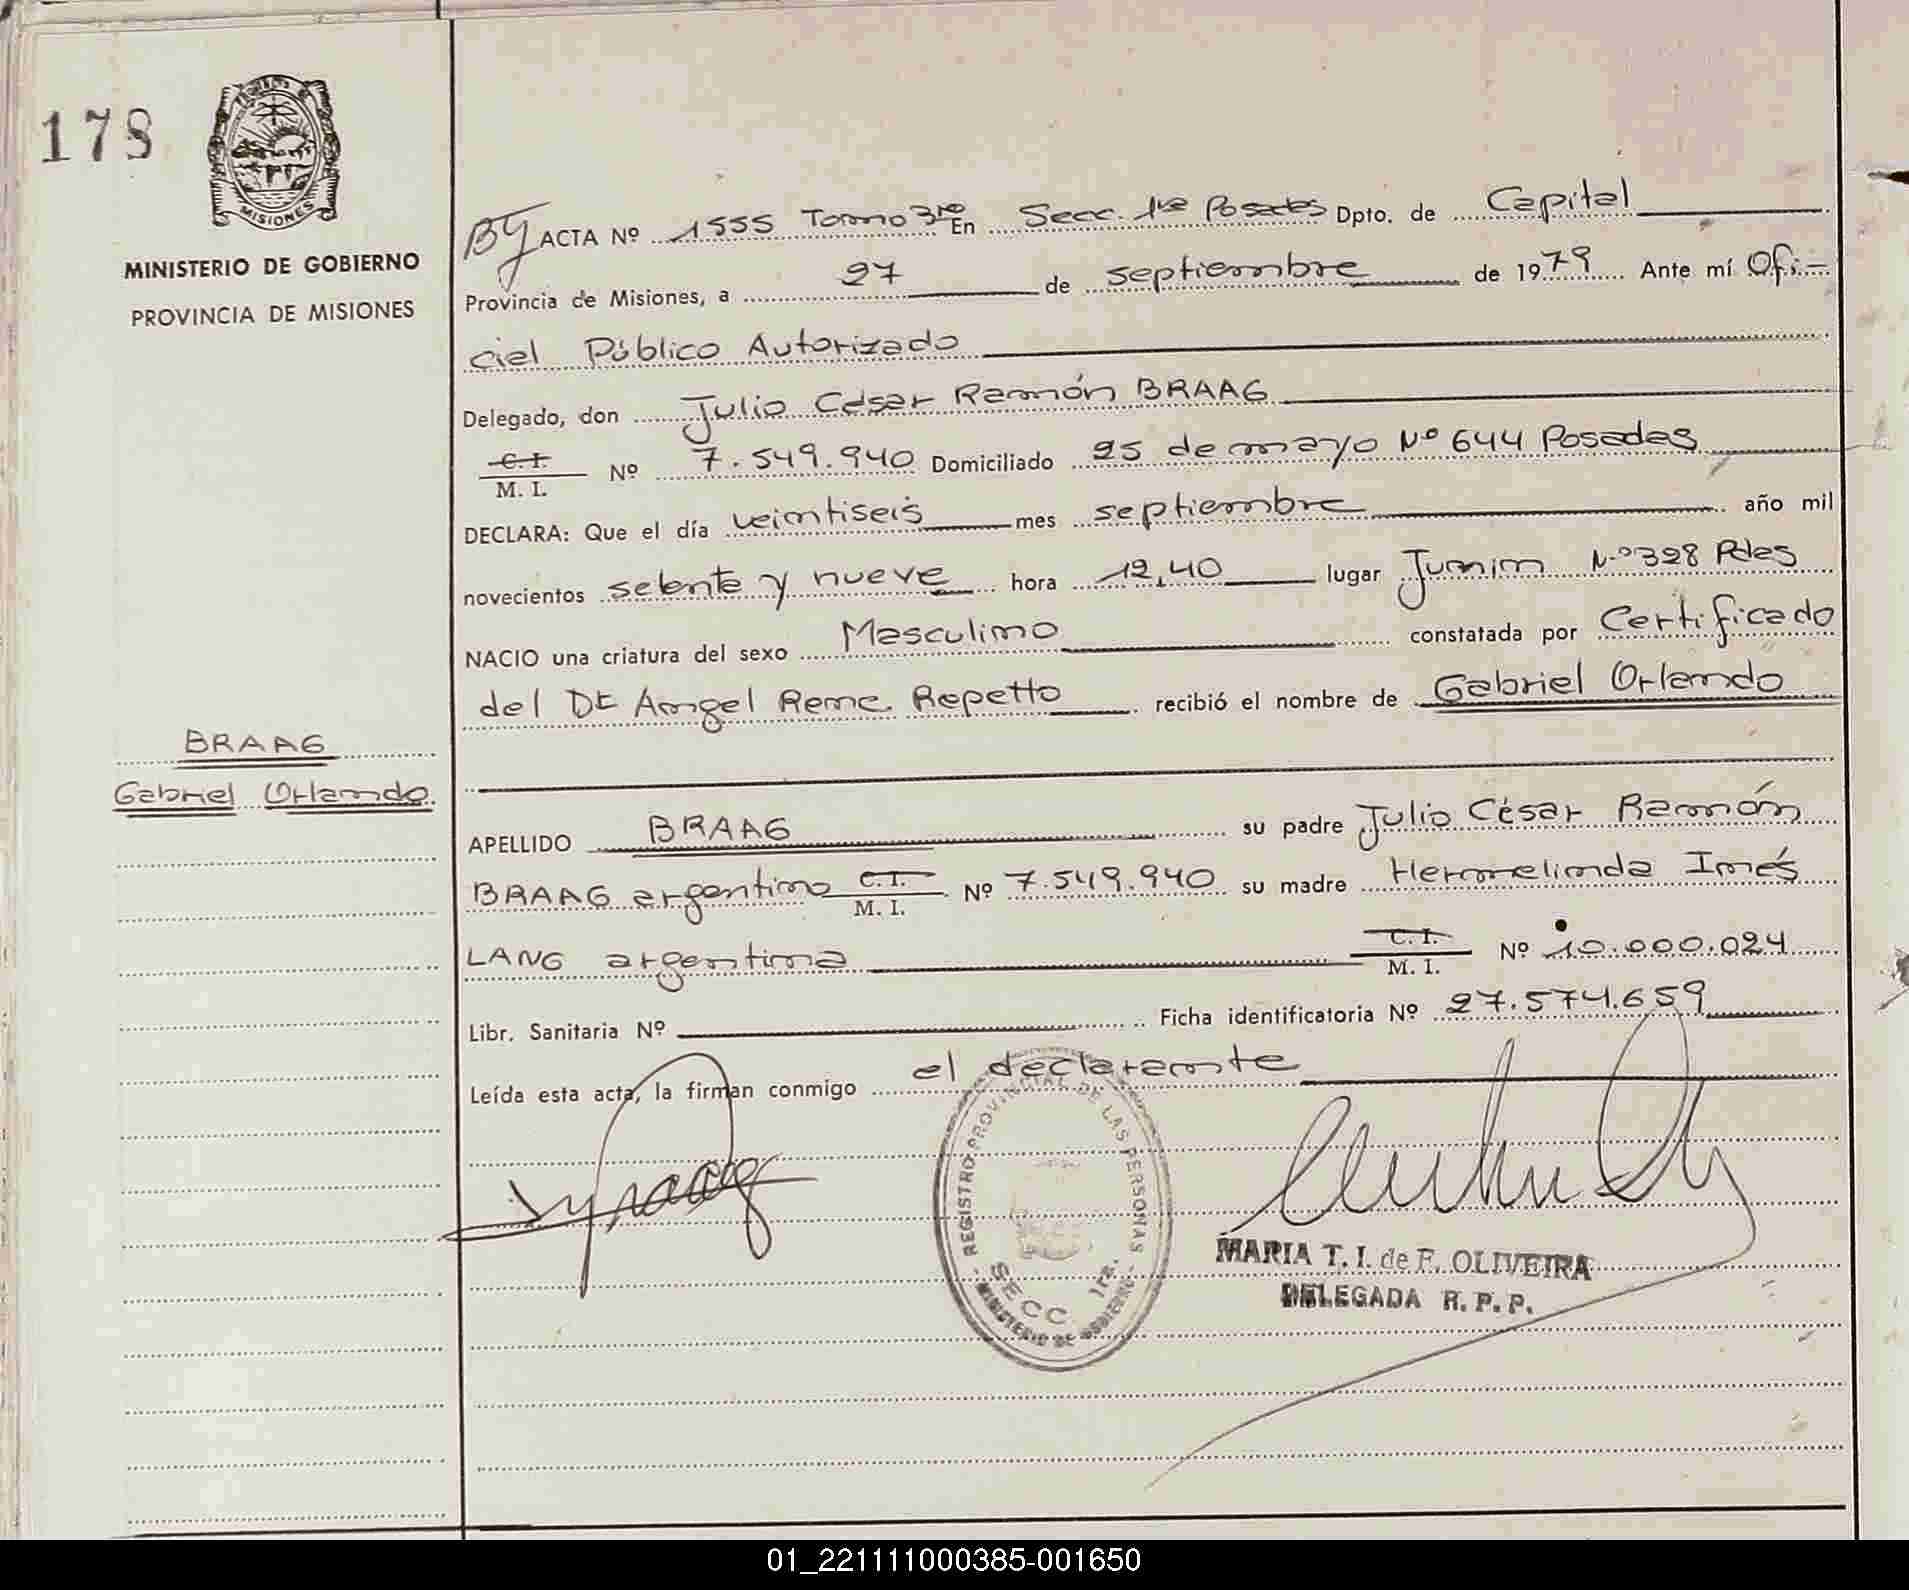 178
MISIONES
MINISTERIO DE GOBIERNO
PROVINCIA DE MISIONES
By ACTA Nº 1555 Tomo 3ro En Secc. 1ra Posadas Dpto. de Capital
Provincia de Misiones, a 27 de septiembre de 1979 Ante mí Ofi-
cial Público Autorizado
Delegado, don Julio César Ramón BRAAG
C.I.
M. I. Nº 7.549.940 Domiciliado 25 de mayo Nº 644 Posadas
DECLARA: Que el día veintiseis mes septiembre año mil
novecientos setenta y nueve hora 12,40 lugar Junin Nº 328 Pdas
NACIO una criatura del sexo Masculino constatada por Certificado
del Dr Angel Rene Repetto recibió el nombre de Gabriel Orlando
BRAAG
Gabriel Orlando
APELLIDO BRAAG su padre Julio César Ramón
BRAAG argentino C.I. M. I. Nº 7.549.940 su madre Hermelinda Inés
LANG argentina C.I. M. I. Nº 10.000.024
Libr. Sanitaria Nº Ficha identificatoria Nº 27.574.659
Leída esta acta, la firman conmigo el declarante
REGISTRO PROVINCIAL DE LAS PERSONAS
SECC 1ra.
MINISTERIO DE GOBIERNO
MARIA T. I. de F. OLIVEIRA
DELEGADA R. P. P.
01_221111000385-001650